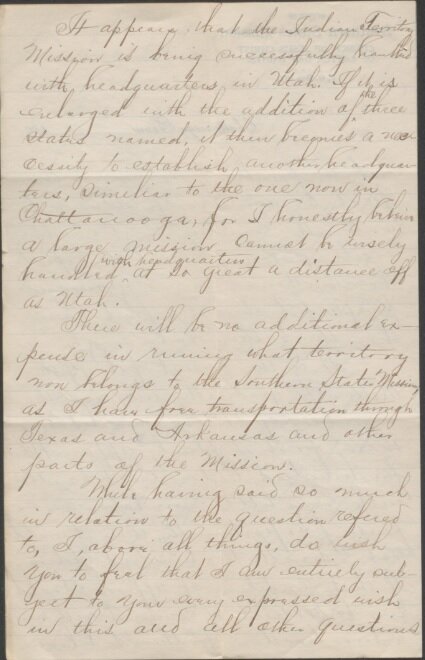 It appears, that the Indian Territory
Mission is being successfully handled
with headquarters in Utah. If it is
enlarged with the addition of the three
states named, it then becomes a nec-
cessity to establish another headquar-
ters, similiar to the one now in
Chattanooga, for I honestly believe
a large mission cannot be wisely
handled with headquarters at so great a distance off
as Utah.
There will be no additional ex-
pense in running what territory
now belongs to the Southern States Mission,
as I have free transportation through
Texas and Arkansas and other
parts of the Mission.
With having said so much
in relation to the question refered
to, I, above all things, do wish
you to feel that I am entirely sub-
ject to your every expressed wish
in this and all other questions